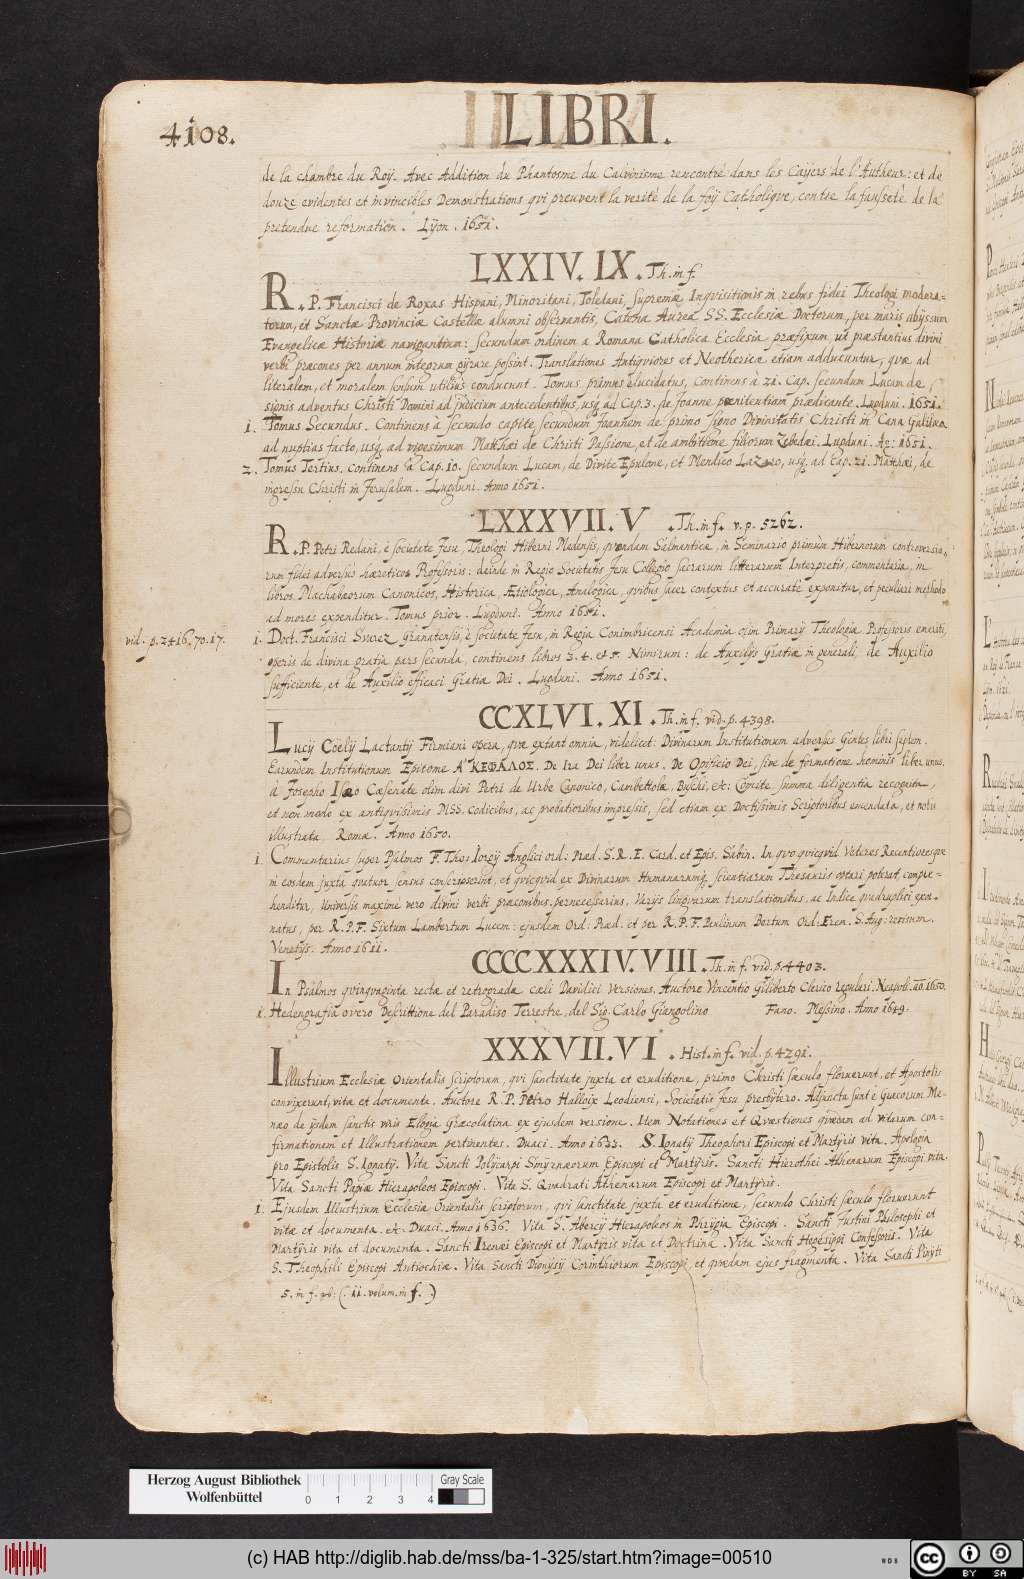 4108.
LIBRI.
de la chambre du Roy. Avec Addition du Phantosme du Calvinisme rencontré dans les Cayers de l'Autheur: et de
douze evidentes et invincibles Demonstrations qui preuvent la verité de la foy Catholique, contre la fausseté de la
pretendue reformation. Lyon. 1651.
LXXIV. IX. Th. in f.
R. P. Francisci de Roxas Hispani, Minoritani, Toletani, Supremæ Inquisitionis in rebus fidei Theologi modera=
torum, et Sanctæ Provinciæ Castellæ alumni observantis, Catena Aurea SS. Ecclesiæ Doctorum, per maris abyssum
Evangelicæ Historiæ navigantium: secundum ordinem a Romana Catholica Ecclesia præfixum, ut præstantius divini
verbi præcones per annum integrum gyrare possint. Translationes Antiquiores et Neothericæ etiam adducuntur, quæ ad
literalem, et moralem sensum utilius conducunt. Tomus primus elucidatus, continens à 21. Cap. secundum Lucam de
signis adventus Christi Domini ad judicium antecedentibus, usq. ad Cap. 3. de Joanne pœnitentiam prædicante. Lugduni. 1651.
1. Tomus Secundus. Continens a secundo capite secundum Joannem de primo signo Divinitatis Christi in Cana Galilææ
ad nuptias facto, usq. ad vigesimum Matthæi de Christi Passione, et de ambitione filiorum Zebedæi. Lugduni. Aº: 1651.
2. Tomus Tertius. continens à Cap. 10. secundum Lucam, de Divite Epulone, et Mendico Lazaro, usq. ad Cap. 21. Matthæi, de
ingressu Christi in Jerusalem. Lugduni. Anno 1651.
LXXXVII. V. Th. in f. v. p. 5262.
R. P. Petri Redani, è societate Jesu, Theologi Hiberni Medensis, quondam Salmanticæ, in Seminario primùm Hibernorum controversia=
rum fidei adversùs hæreticos Professoris: deinde in Regio Societatis Jesu Collegio sacrarum litterarum Interpretis, commentaria, in
libros Machabæorum Canonicos, Historica, Ætiologica, Analogica, quibus sacer contextus et accuratè exponitur, et peculiari methodo
ad mores expenditur. Tomus prior. Lugduni. Anno 1651.
vid. p. 2416. 70. 17.
1. Doct. Francisci Suarez Granatensis, è societate Jesu, in Regia Conimbricensi Academia olim Primarij Theologiæ Professoris emeriti,
operis de divina gratia pars secunda, continens libros 3. 4. et 5. Nimirum: de Auxilijs Gratiæ in generali, de Auxilio
sufficiente, et de Auxilio efficaci Gratiæ Dei. Lugduni. Anno 1651.
CCXLVI. XI. Th. in f. vid. p. 4398.
Lucij Cœlij Lactantij Firmiani opera, quæ extant omnia, videlicet: Divinarum Institutionum adversus Gentes libri septem.
Earundem Institutionum Epitome ἈΚΕΦΑΛΟΣ. De Ira Dei liber unus. De Opificio Dei, sive de formatione hominis liber unus.
à Josepho Isæo Cæsenate olim divi Petri de Urbe Canonico, Cambettolæ, Buschi, &c: Comite summa diligentia recognita,
et non modo ex antiquissimis MSS. codicibus, ac probatioribus impressis, sed etiam ex Doctissimis Scriptoribus emendata, et notis
illustrata. Romæ. Anno 1650.
1. Commentarius super Psalmos F. Thos Jorgij Anglici ord: Præd. S. R. E. Card. et Epis. Sabin. In quo quicquid Veteres Recentioresque
in eosdem juxta quatuor sensus conscripserint, et quicquid ex Divinarum Humanarumq. scientiarum Thesauris optari poterat, compre=
henditur, Universis maxime vero divini verbi præconibus pernecessarius, Varijs linguarum translationibus, ac Indice quadruplici exor=
natus, per R. P. F. Sixtum Lambertum Lucem: ejusdem Ord: Præd. et per R. P. F. Paulinum Bertum Ord: Erem. S. Aug: revisum.
Venetijs. Anno 1611.
CCCCXXXIV. VIII. Th. in f. vid. p. 4403.
In Psalmos quinquaginta rectæ et retrogradæ cæli Davidici Versiones. Auctore Vincentio Giliberto Clerico regulari. Neapoli. aõ. 1650.
1. Hedengrafia overo Descrittione del Paradiso Terrestre, del Sig. Carlo Giangolino Fano. Messino. Anno 1649.
XXXVII. VI. Hist. in f. vid. p. 4291.
Illustrium Ecclesiæ Orientalis scriptorum, qui sanctitate juxta et eruditione, primo Christi sæculo floruerunt, et Apostolis
convixerunt, vitæ et documenta. Auctore R. P. Petro Halloix Leodiensi, Societatis Jesu presbytero. Adjuncta sunt è Græcorum Me=
næo de ijsdem sanctis viris Elogia Græcolatina ex ejusdem versione. Item Notationes et Quæstiones quædam ad vitarum con=
firmationem et Illustrationem pertinentes. Duaci. Anno 1633. S. Ignatij Theophori Episcopi et Martyris vita. Apologia
pro Epistolis S. Ignatij. Vita Sancti Polycarpi Smyrnæorum Episcopi et Martyris. Sancti Hierothei Athenarum Episcopi vita.
Vita Sancti Papiæ Hierapoleos Episcopi. Vita S. Quadrati Athenarum Episcopi et Martyris.
1. Ejusdem Illustrium Ecclesiæ Orientalis scriptorum, qui sanctitate juxta et eruditione, secundo Christi sæculo floruerunt
vitæ et documenta. &c. Duaci. Anno 1636. Vita S. Abercij Hierapoleos in Phrygia Episcopi. Sancti Justini Philosophi et
Martyris vita et documenta. Sancti Irenæi Episcopi et Martyris vita et Doctrina. Vita Sancti Hegesippi Confessoris. Vita
S. Theophili Episcopi Antiochiæ. Vita Sancti Dionysij Corinthiorum Episcopi, et quædam ejus fragmenta. Vita Sancti Pinyti
(. 11. volum. in f. .)
Herzog August Bibliothek
Wolfenbüttel
0 1 2 3 4
Gray Scale
(c) HAB http://diglib.hab.de/mss/ba-1-325/start.htm?image=00510
WDB
cc BY SA